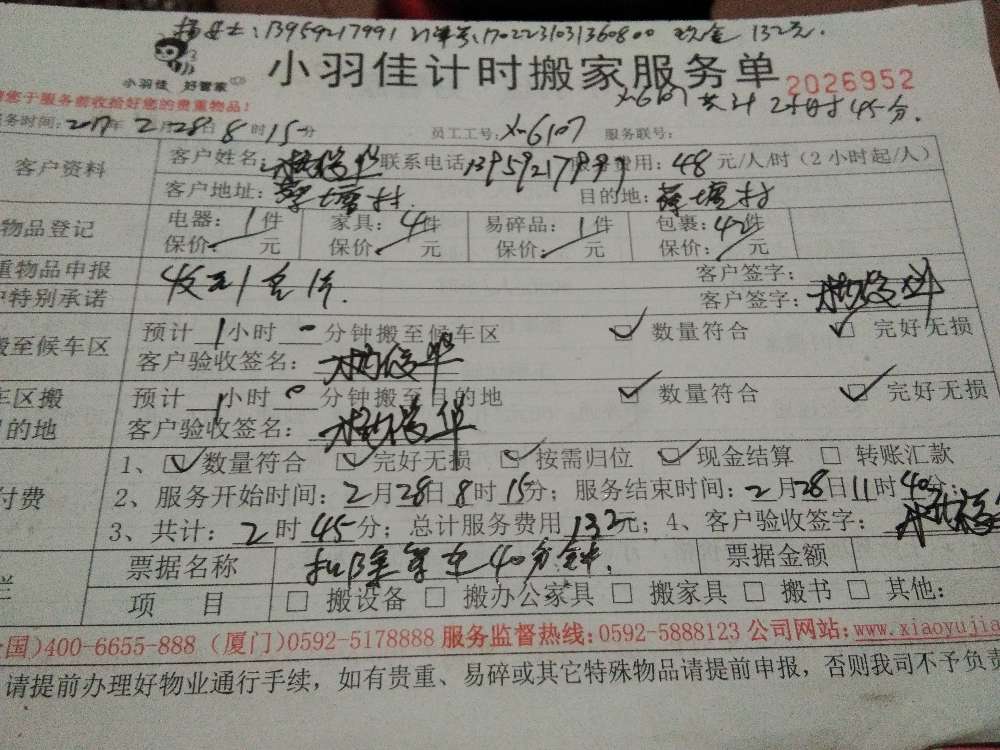 杨女士:13959217991 订单号:1702231031360800 现金 132元.
小羽佳 好管家
小羽佳计时搬家服务单 2026952
您于服务前收拾好您的贵重物品!
X-6107 共计 2小时45分.
务时间:2017年2月28日8时15分 员工工号:X-6107 服务联号:
客户资料 客户姓名: 联系电话13959217991 费用:48元/人/时(2小时起/人)
客户地址:薛塘村. 目的地:薛塘村
物品登记 电器:1件 家具:4件 易碎品:1件 包裹:42件
保价: 元 保价: 元 保价: 元 保价: 元
重物品申报 客户签字:
户特别承诺 客户签字:
搬至候车区 预计1小时0分钟搬至候车区 ☑数量符合 ☑完好无损
客户验收签名:
车区搬 预计1小时0分钟搬至目的地 ☑数量符合 ☑完好无损
目的地 客户验收签名:
1、☑数量符合 ☑完好无损 ☑按需归位 ☑现金结算 □转账汇款
付费 2、服务开始时间:2月28日8时15分;服务结束时间:2月28日11时40分;
3、共计:2时45分;总计服务费用132元;4、客户验收签字:
栏 票据名称 扣除等车40分钟. 票据金额
项 目 □搬设备 □搬办公家具 □搬家具 □搬书 □其他:
全国)400-6655-888 (厦门)0592-5178888 服务监督热线:0592-5888123 公司网站:www.xiaoyujia
请提前办理好物业通行手续，如有贵重、易碎或其它特殊物品请提前申报，否则我司不予负责